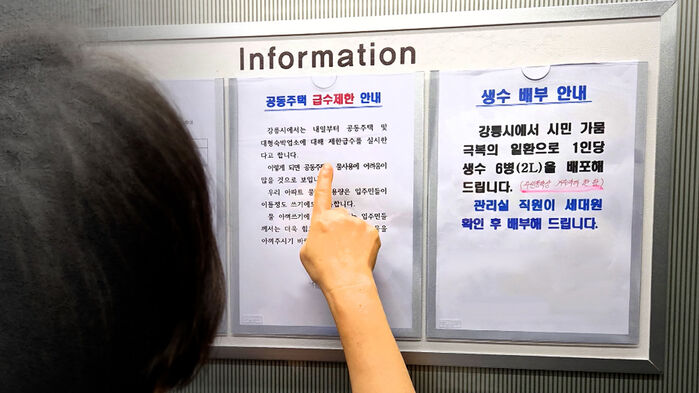 Information
공동주택 급수제한 안내
강릉시에서는 내일부터 공동주택 및
대형숙박업소에 대해 제한급수를 실시한
다고 합니다.
이렇게 되면 물사용에 어려움이
많을 것으로
우리 아파트 입주민들이
이틀정도 쓰기에도
물 아껴쓰기에 입주민들
께서는 더욱
아껴주시기
생수 배부 안내
강릉시에서 시민 가뭄
극복의 일환으로 1인당
생수 6병(2L)을 배포해
드립니다.
관리실 직원이 세대원
확인 후 배부해 드립니다.